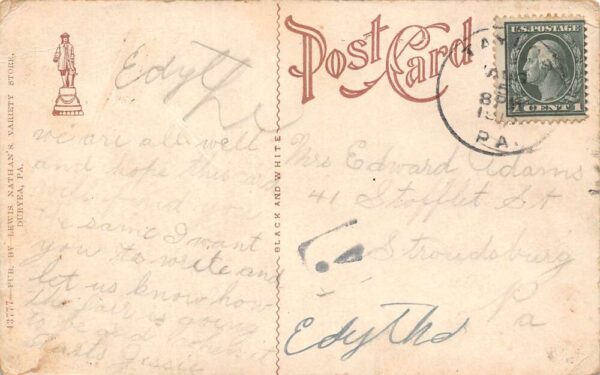 Post Card
43777—PUB. BY LEWIS NATHAN'S VARIETY STORE,
DURYEA, PA.
BLACK AND WHITE
Edyth
we are all well
and hope this card
will find you
the same I want
you to write and
let us know how
the fair is going
to be and when it
starts Jessie
U.S. POSTAGE
1 CENT 1
8 PM
PA.
Mrs Edward Adams
41 Stofflet St
Stroudsburg
Pa
Edythd